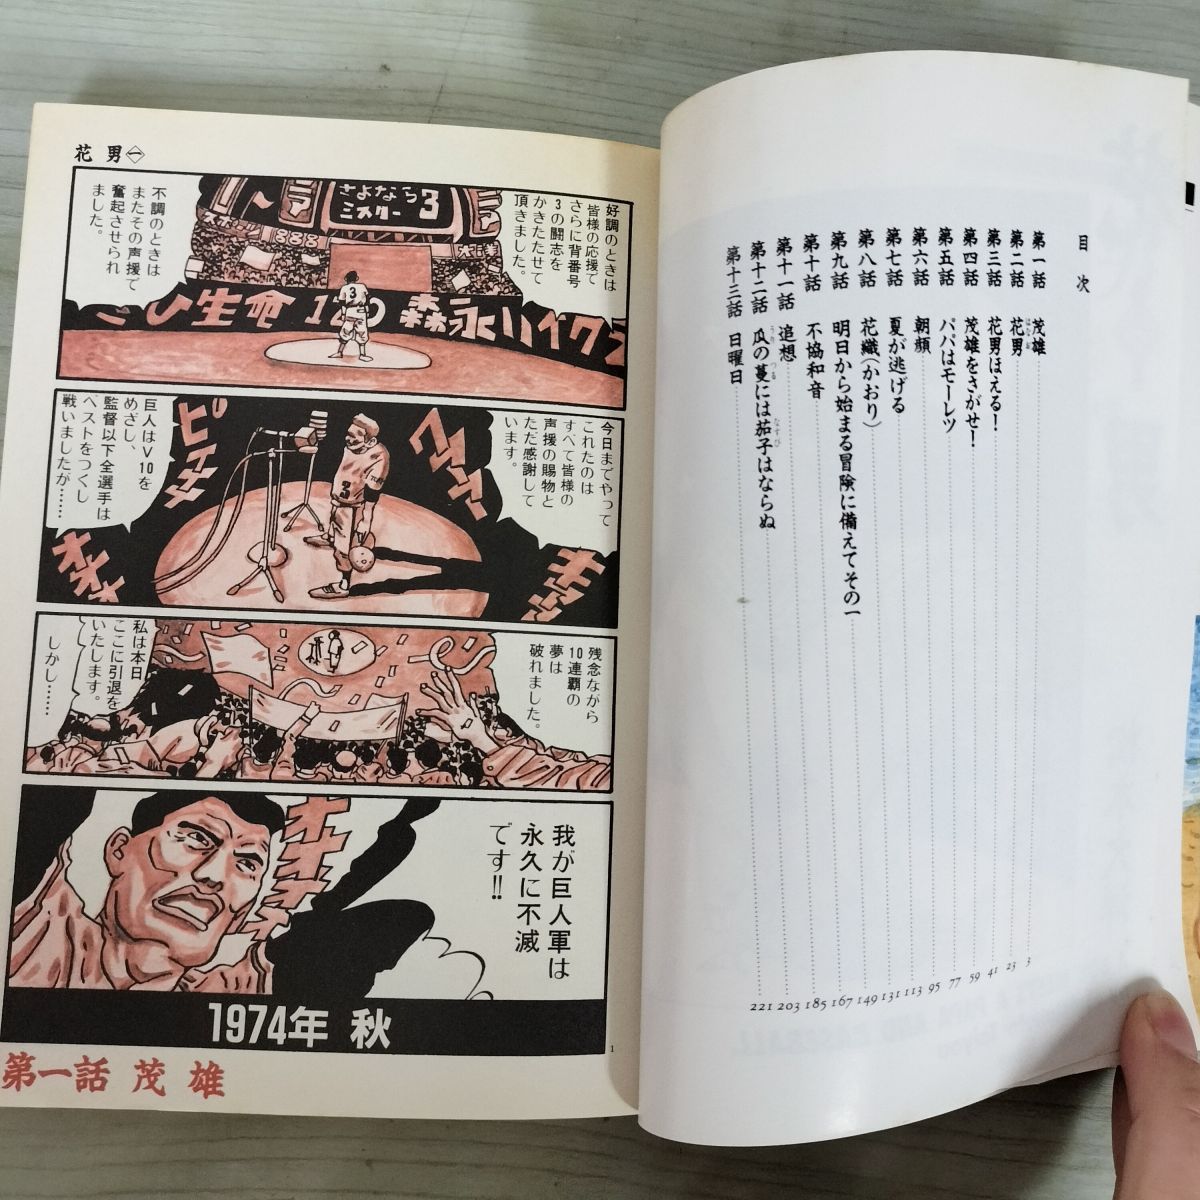 花男㊀
好調のときは
皆様の応援で
さらに背番号
3の闘志を
かきたたせて
頂きました。
さよなら
ミスター3
不調のときは
またその声援で
奮起させられ
ました。
888
生命 120 森永ハイクラ
今日までやって
これたのは
すべて皆様の
声援の賜物と
ただ感謝して
います。
3
巨人はV10を
めざし、
監督以下全選手は
ベストをつくし
戦いましたが……
残念ながら
10連覇の
夢は
破れました。
私は本日
ここに引退を
いたします。
しかし……
我が巨人軍は
永久に不滅
です!!
1974年 秋
1
第一話 茂雄
目次
第一話 茂雄 3
第二話 花男 はなお 23
第三話 花男ほえる! 41
第四話 茂雄をさがせ! 59
第五話 パパはモーレツ 77
第六話 朝顔 95
第七話 夏が逃げる 113
第八話 花織(かおり) 131
第九話 明日から始まる冒険に備えてその一 149
第十話 不協和音 167
第十一話 追想 185
第十二話 瓜の蔓には茄子はならぬ うり つる なすび 203
第十三話 日曜日 221